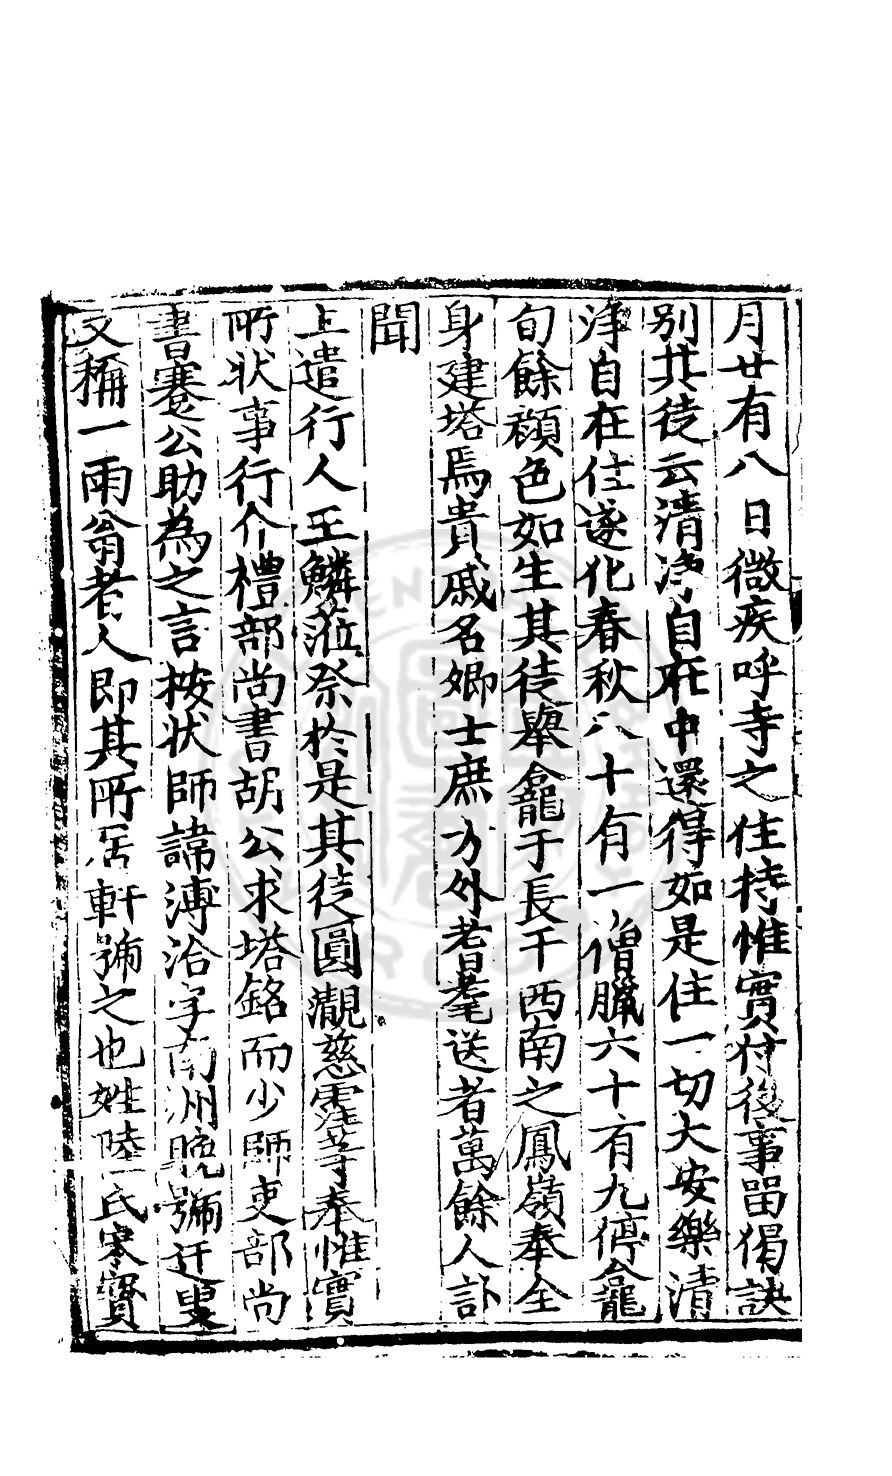 月廿有八日微疾呼寺之住持惟實付後事留偈訣
别其徒云清淨自在中還得如是住一切大安樂清
淨自在住遂化春秋八十有一僧臘六十有九停龕
旬餘顔色如生其徒舉龕于長干西南之鳳嶺奉全
身建塔焉貴戚名卿士庶方外耆耄送者萬餘人訃
聞
上遣行人王鱗蒞祭於是其徒圓瀞慈霔等奉惟實
所狀事行介禮部尚書胡公求塔銘而少師吏部尚
書蹇公助為之言按狀師諱溥洽字南洲晚號迂叟
又稱一雨翁老人即其所居軒號之也姓陸氏家寳